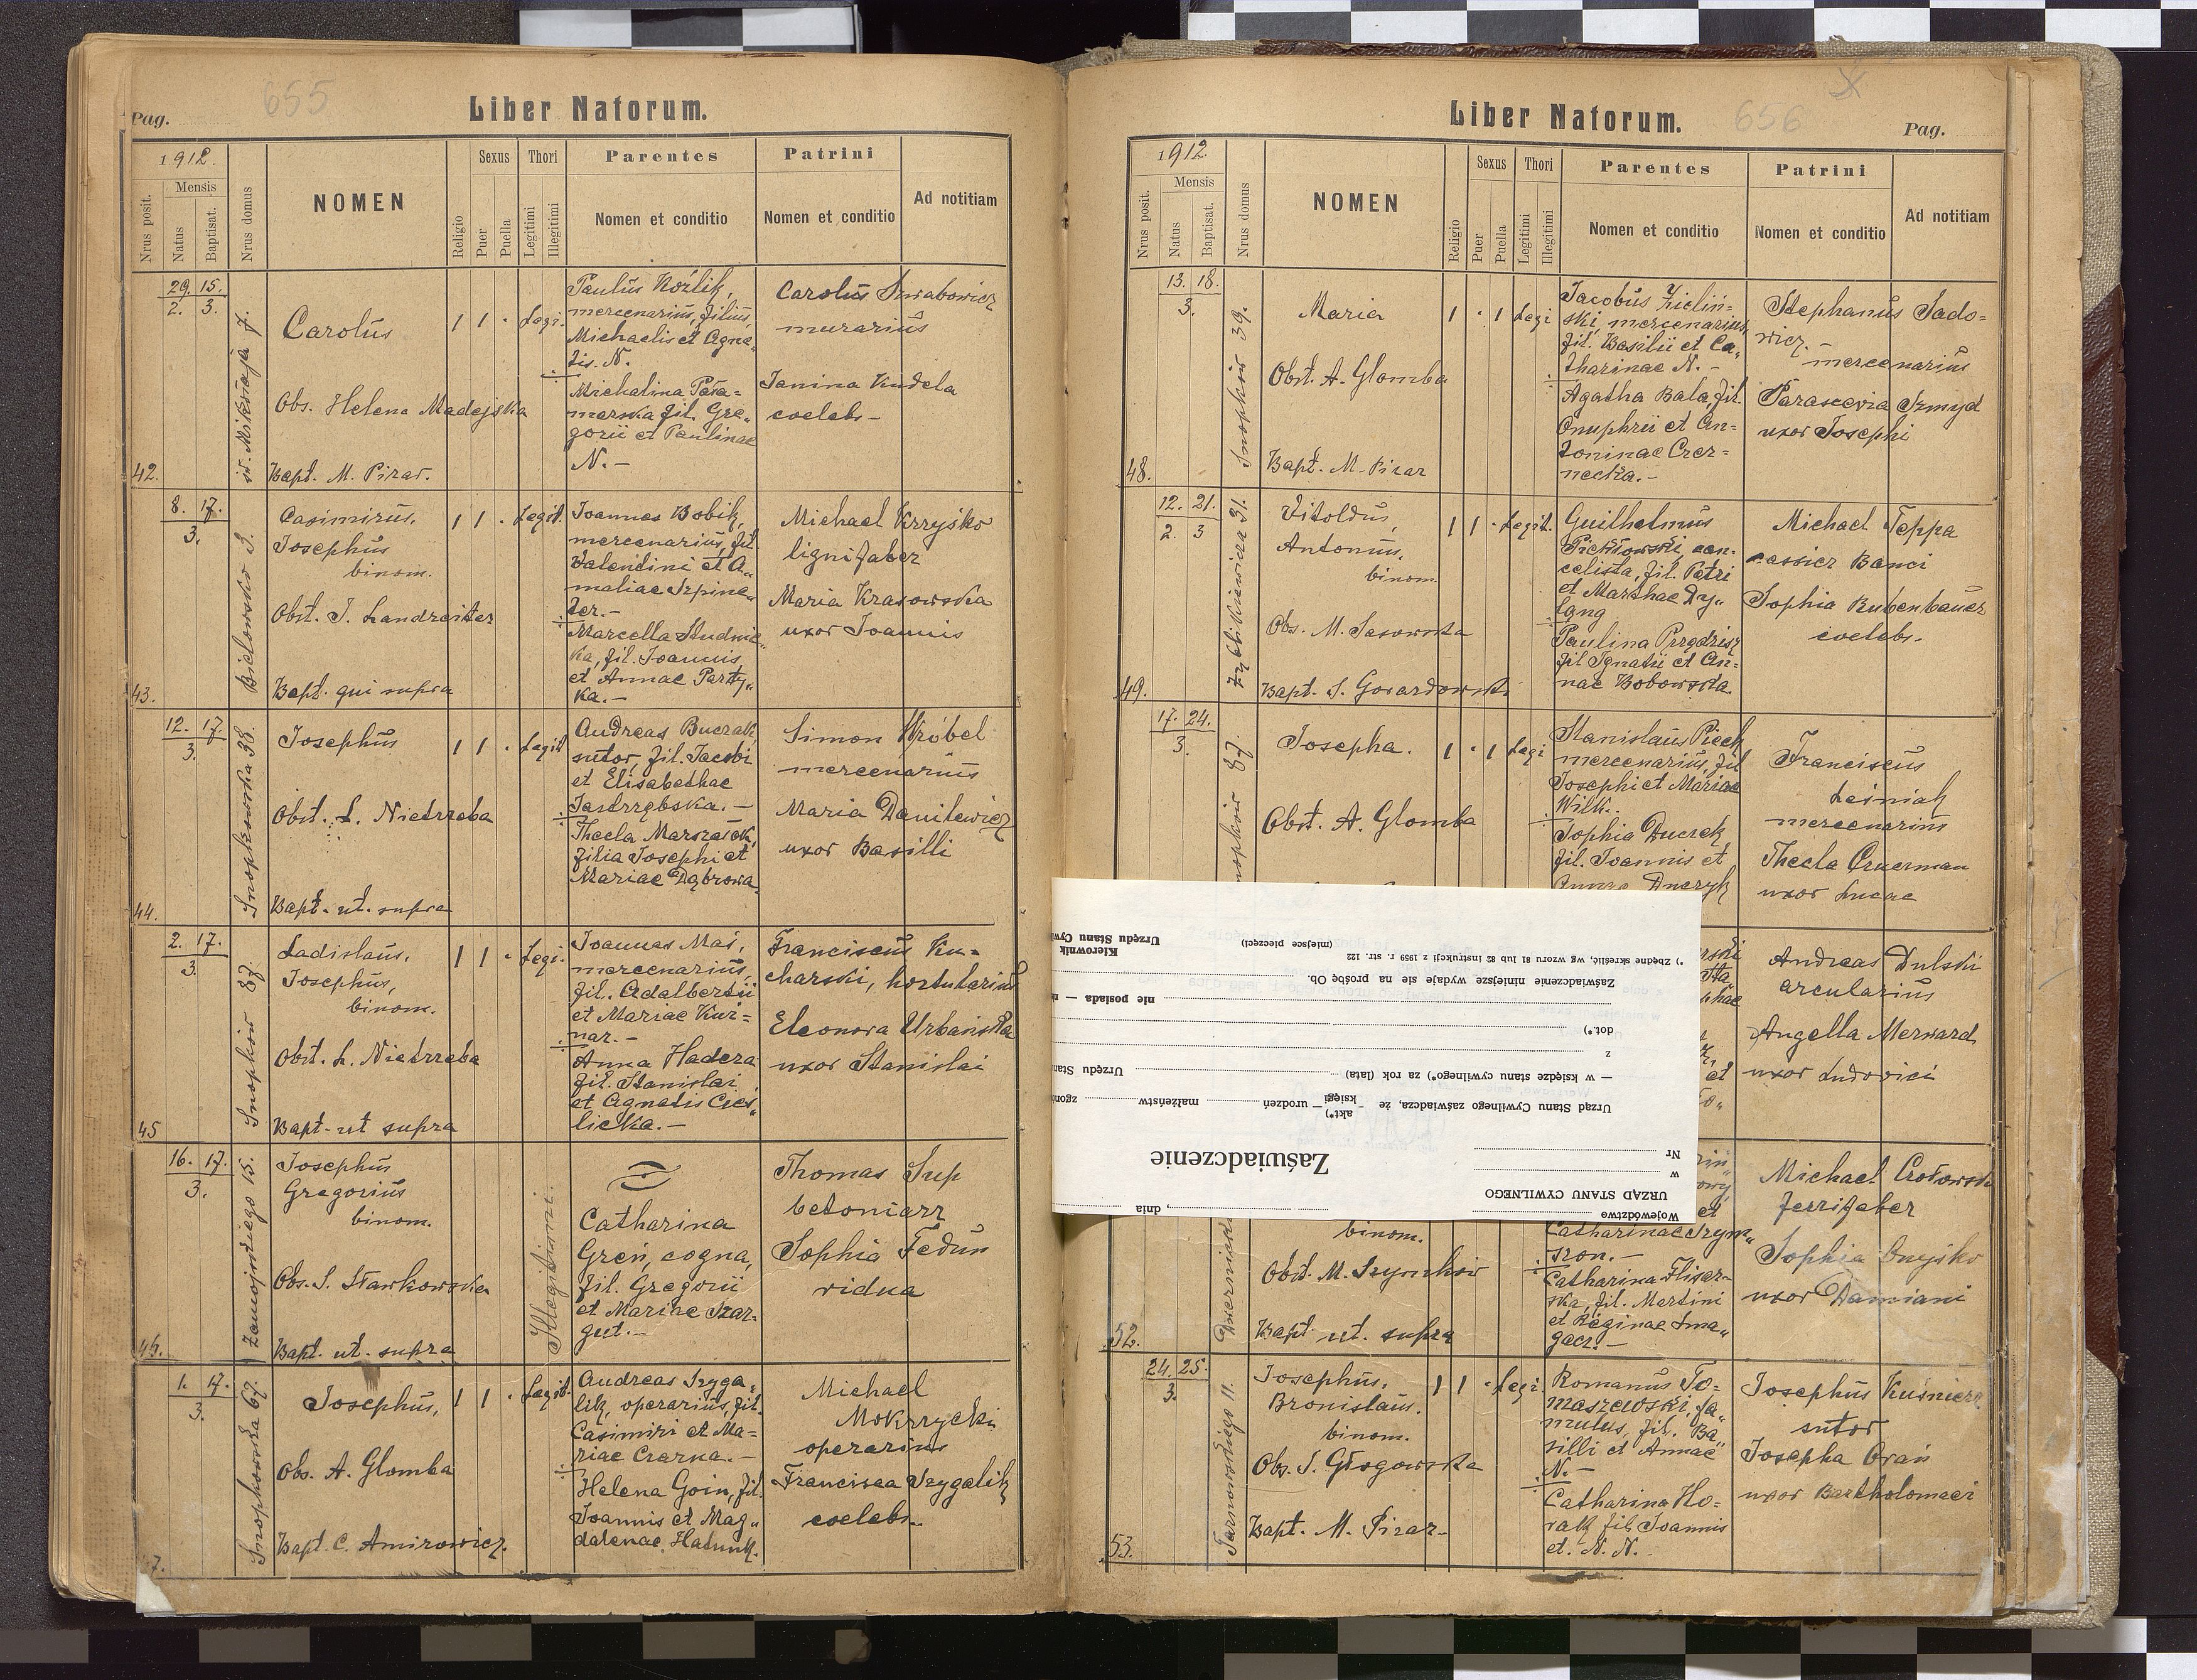 655
Pag.
Liber Natorum.
1912.
Nrus posit.
Mensis
Natus
Baptisat.
Nrus domus
NOMEN
Religio
Sexus
Puer
Puella
Thori
Legitimi
Illegitimi
Parentes
Nomen et conditio
Patrini
Nomen et conditio
Ad notitiam
29. 15.
2. 3.
42.
św. Mikołaja 7.
Carolus
Obs. Helena Madejska
Bapt. M. Pirar.
1 1 · Legi.
Paulus Koźlik,
mercenarius, filius
Michaelis et Agne„
tis. N.
Michalina Para=
merska fil. Gre„
gorii et Paulinae
N.-
Carolus Szwabowicz
murarius
Janina Kudela
coelebs-
8. 17.
3.
43.
Bielowsko 3.
Casimirus,
Josephus
binom.
Obst. J. Landreiter
Bapt. qui supra
1 1 · Legit.
Joannes Bobik,
mercenarius, fil.
Valentini et A„
maliae Szpina„
ter.-
Marcella Studnic„
ka, fil. Joannis
et Annae Party„
ka.-
Michael Krzyśko
lignifaber
Maria Krasowska
uxor Joannis
12. 17.
3.
44.
Snopkowska 38.
Josephus
Obst. L. Nietrzeba
Bapt. ut. supra
1 1 · Legit
Andreas Buczak
sutor, fil. Jacobi
et Elisabethae
Jastrzębska.-
Thecla Marszałek,
filia Josephi et
Mariae Dąbrowa.
Simon Wróbel
mercenarius
Maria Danilewicz
uxor Basilli
2. 17.
3.
45
Snopków 87.
Ladislaus,
Josephus,
binom.
Obst. L. Nietrzeba
Bapt. ut supra
1 1 · Legi.
Joannes Maś,
mercenarius,
fil. Adalberti
et Mariae Kuź=
nar.-
Anna Hadera
fil. Stanislai
et Agnetis Cieś„
licka.-
Franciscus Ku=
charski, hortularius
Eleonora Urbańska
uxor Stanislai
16. 17.
3.
46.
Zamojskiego 15.
Josephus
Gregorius
binom.
Obs. S. Stankowska
Bapt. ut. supra
Illegitimi.
Catharina
Greń, cogna,
fil. Gregorii
et Mariae Szar-
gut.-
Thomas Sup
betoniarz
Sophia Fedun
vidua
1. 17.
3.
7.
Snopkowska 67.
Josephus,
Obs. A. Glomba
Bapt. C. Amirowicz.
1 1 · Legit.
Andreas Szyga„
lik, operarius, fil.
Casimiri et Ma=
riae Czarna.-
Helena Goin, fil.
Joannis et Mag„
dalenae Hatunk.
Michael
Mokrzycki
operarius
Francisca Szygalik
coelebs.
Liber Natorum.
656
Pag.
1912.
Nrus posit.
Mensis
Natus
Baptisat.
Nrus domus
NOMEN
Religio
Sexus
Puer
Puella
Thori
Legitimi
Illegitimi
Parentes
Nomen et conditio
Patrini
Nomen et conditio
Ad notitiam
13. 18.
3.
48.
Snopków 39.
Maria
Obst. A. Glomba
Bapt. M. Pirar
1 · 1 Legi
Jacobus Zieliń=
ski, mercenarius,
fil. Basilii et Ca„
tharinae N.-
Agatha Bala, fil.
Onuphrii et An=
toninae Czer=
necka.-
Stephanus Sado=
wicz.-
mercenarius
Parascevia Szmyd
uxor Josephi
12. 21.
2. 3
49.
Zyblikiewicza 31.
Vitoldus,
Antonius,
binom.
Obs. M. Sasowska
Bapt. S. Gorardowski
1 1 · Legit.
Guilhelmus
Piekłowski, can=
celista, fil. Petri
et Marthae Dy„
lang
Paulina Przędzisz
fil Ignatii et An=
nae Bobowska.
Michael Teppa
cassier Banci
Sophia Rubenbauer
coelebs.
17. 24.
3.
87.
Josepha.
Obst. A. Glomba
1 · 1 Legi
Stanislaus Piech
mercenarius, fil
Josephi et Mariae
Wilk.-
Sophia Duczek
fil. Joannis et
Annae Duczyk
Franciscus
Leśniak
mercenarius
Thecla Cruerman
uxor Lucae
Andreas Dulski
arcularius
Angella Merward
uxor Ludovici
Województwo
URZĄD STANU CYWILNEGO
w
Nr
, dnia
Zaświadczenie
Urząd Stanu Cywilnego zaświadcza, że akt*) księgi urodzeń małżeństw zgonó
— w księdze stanu cywilnego*) za rok (lata) Urzędu Sta
z
dot*)
nie posiada —
Zaświadczenie niniejsze wydaje się na prośbę Ob.
*) Zbędne skreślić, wg wzoru 81 lub 82 instrukcji z 1959 r. str. 122
(miejsce pieczęci)
Kierownik
Urzędu Stanu Cywi
52.
binom.
Obst. M. Szymków
Bapt. ut. supra
Catharinae Szym„
szon.-
Catharina Fliser-
ska, fil. Martini
et Reginae Sma„
gacz.-
Michael Czołowski
ferrifaber
Sophia Onyśko
uxor Damiani
24. 25.
3.
53.
Tarnowskiego 11.
Josephus,
Bronislaus.
binom.
Obs. S. Głogowska
Bapt. M. Pirar-
1 1 · Legi.
Romanus To=
maszewski, fa=
mulus, fil. Ba„
silli et Annae
N.-
Catharina Ho=
rak fil Joannis
et. N. N.
Josephus Kuśnierz
sutor
Josepha Oran
uxor Bartholomaei